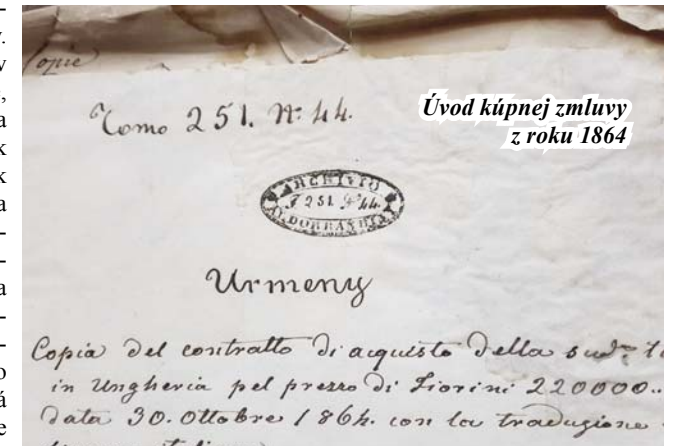 Copie
Tomo 251. Nº 44.
Úvod kúpnej zmluvy
z roku 1864
ARCHIVIO
T 251. Nº 44.
ALDOBRANDINI
Urmeny
Copia del contratto di acquisto della sudª
in Ungheria pel prezzo di Fiorini 220000..
data 30. Ottobre 1864. con la traduzione